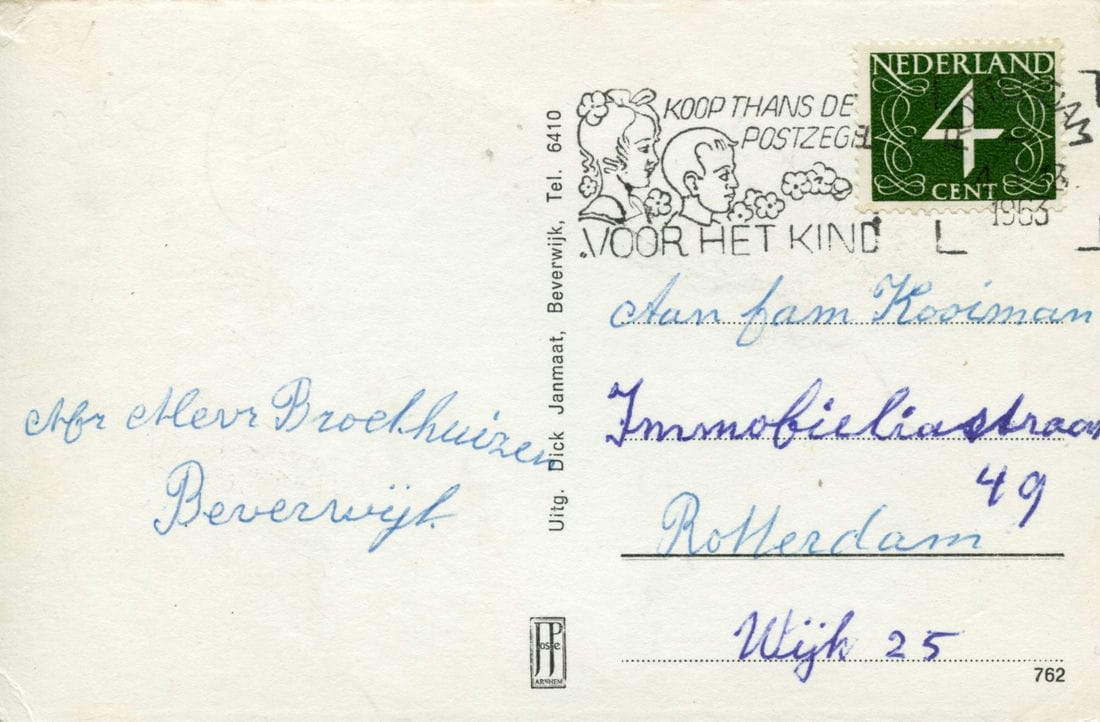 Mhr Mevr Broekhuizen
Beverwijk
Uitg. Dick Janmaat, Beverwijk, Tel. 6410
KOOP THANS DE
POSTZEGEL
VOOR HET KIND
NEDERLAND
4
CENT
1963
Aan fam Kooiman
Immobieliastraat
49
Rotterdam
Wijk 25
JP
osse
ARNHEM
762